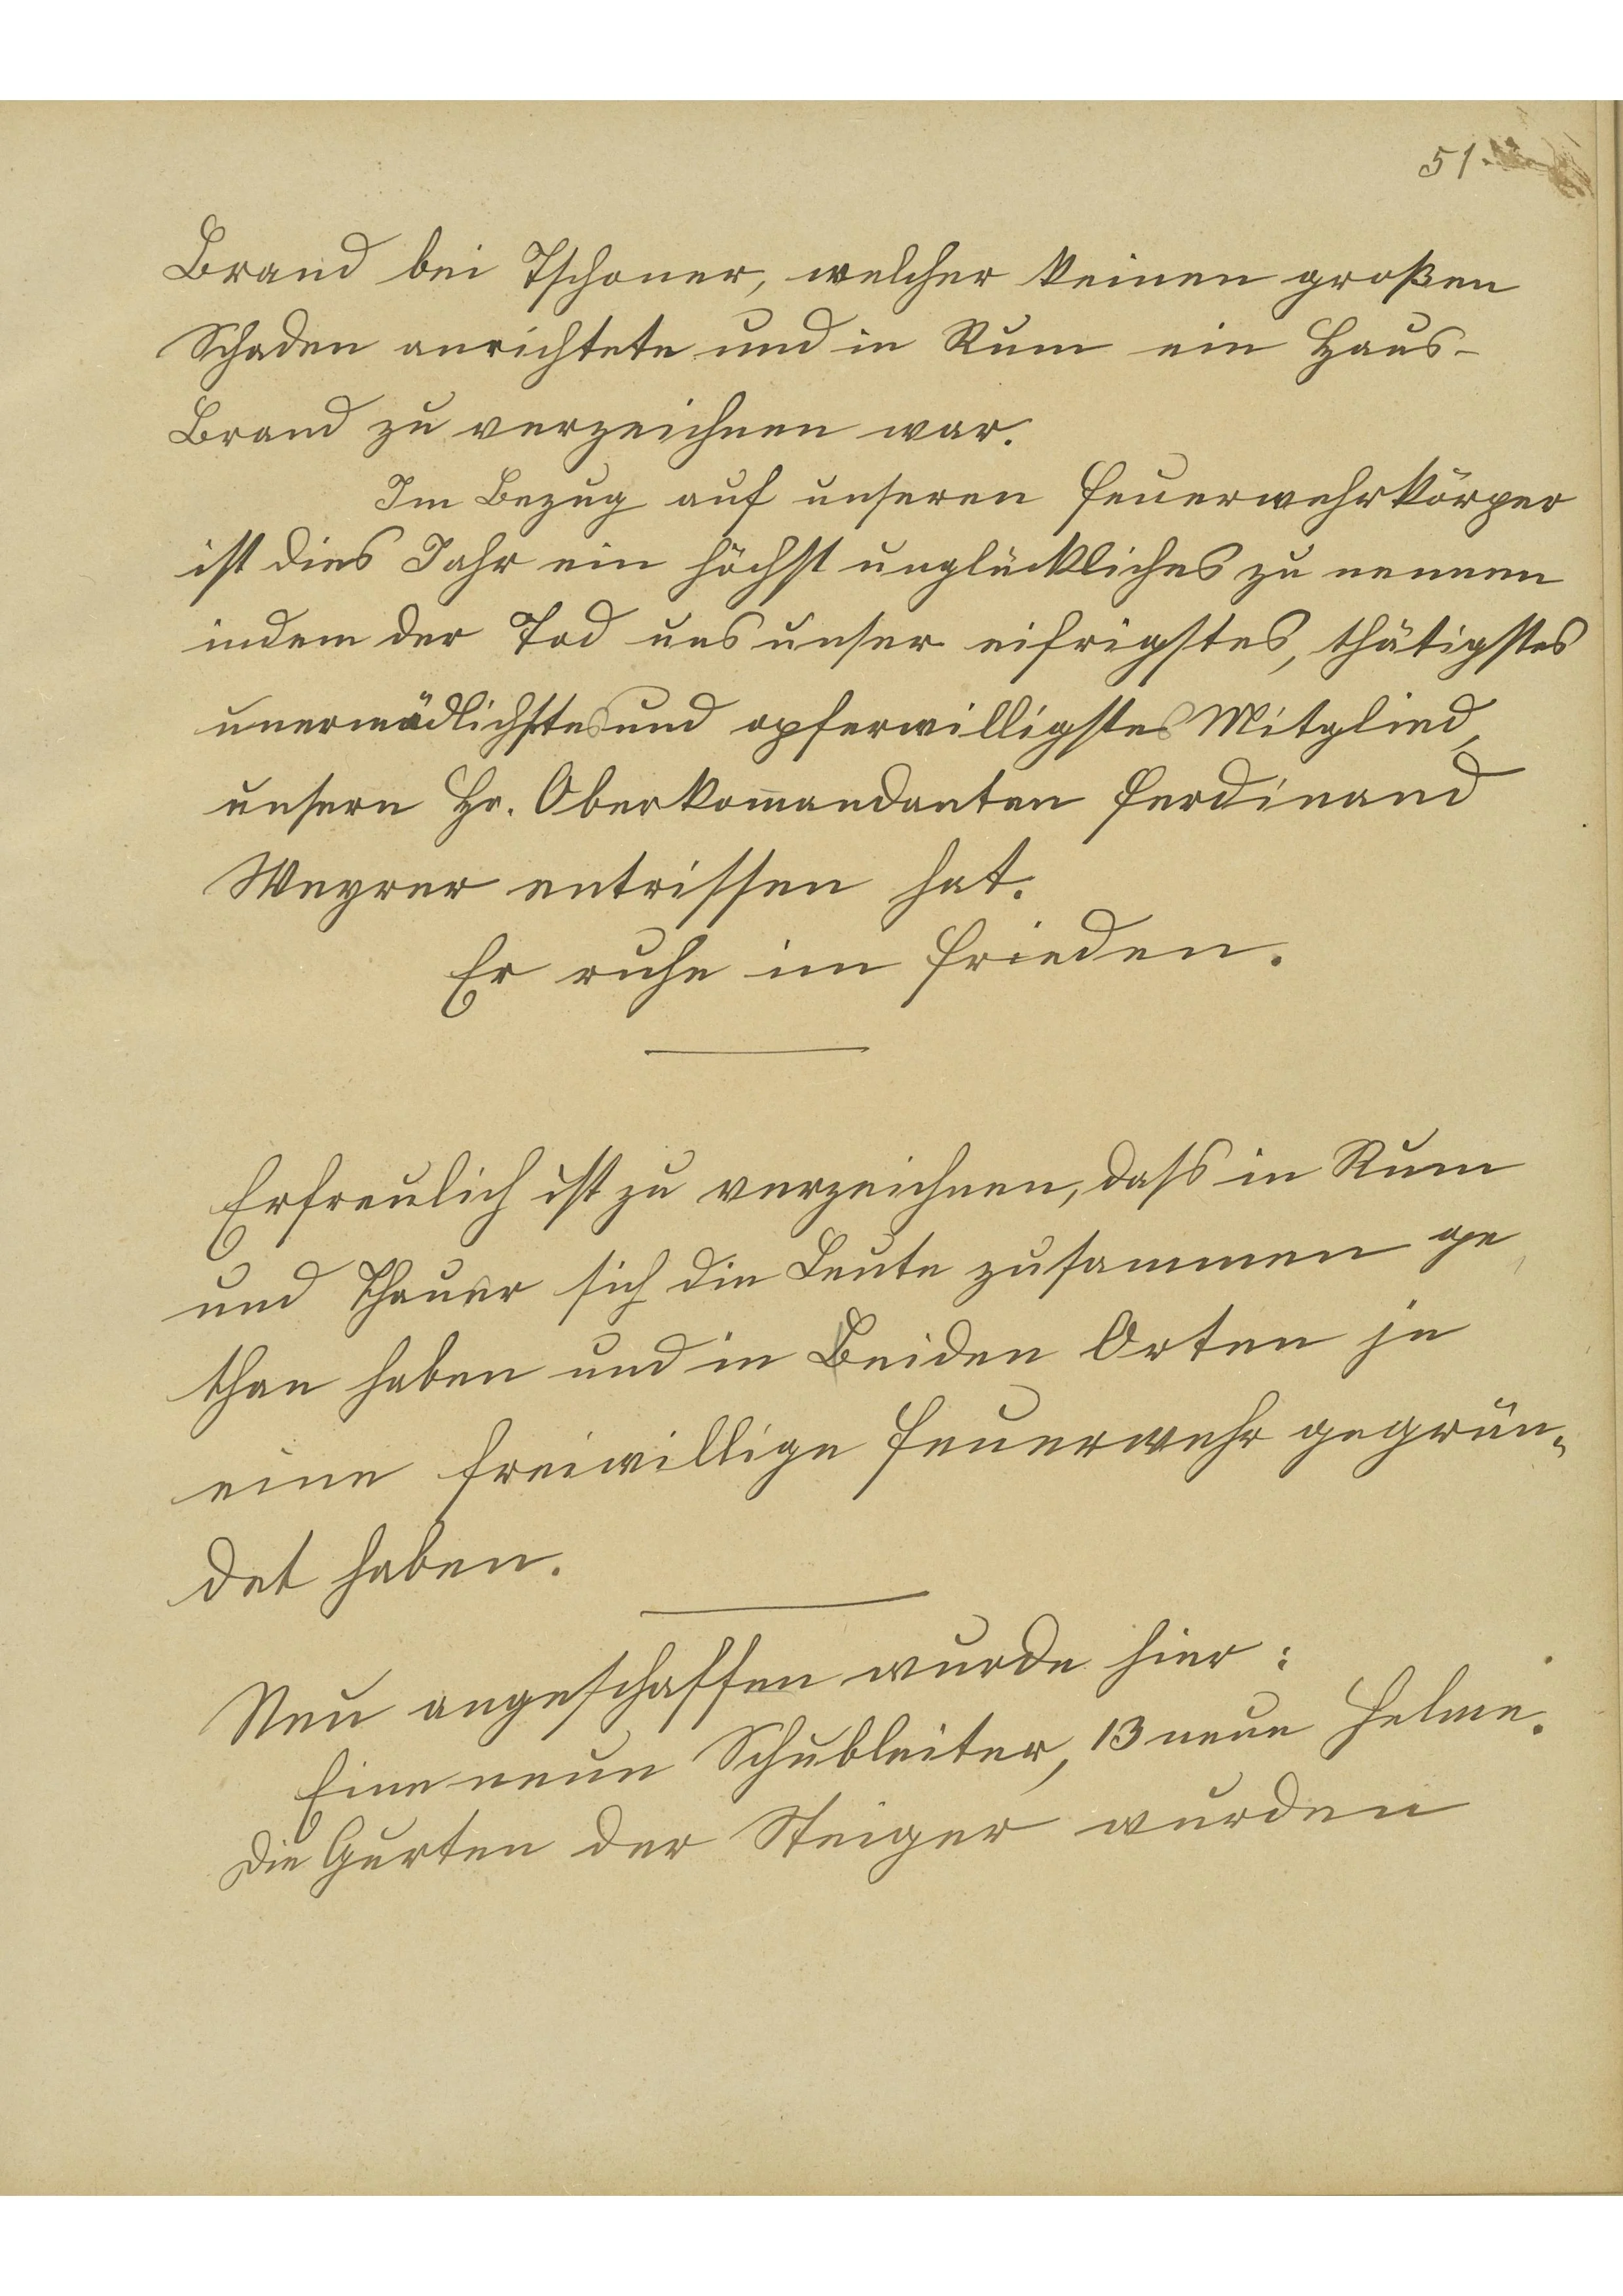 51.
Brand bei Tschoner, welcher keinen großen
Schaden anrichtete und in Rum ein Haus-
Brand zu verzeichnen war.
Im Bezug auf unseren Feuerwehrkörper
ist dies Jahr ein höchst unglückliches zu nennen
indem der Tod uns unser eifrigstes, thätigstes
unermüdlichstes und opferwilligstes Mitglied,
unsern Hr. Oberkom̄andanten Ferdinand
Weyrer entrissen hat.
Er ruhe im Frieden.
Erfreulich ist zu verzeichnen, dass in Rum
und Thauer sich die Leute zusammen ge
than haben und in Beiden Orten je
eine freiwillige Feuerwehr gegrün„
det haben.
Neu angeschaffen wurde hier:
Eine neue Schubleiter, 13 neue Helme.
Die Gurten der Steiger wurden